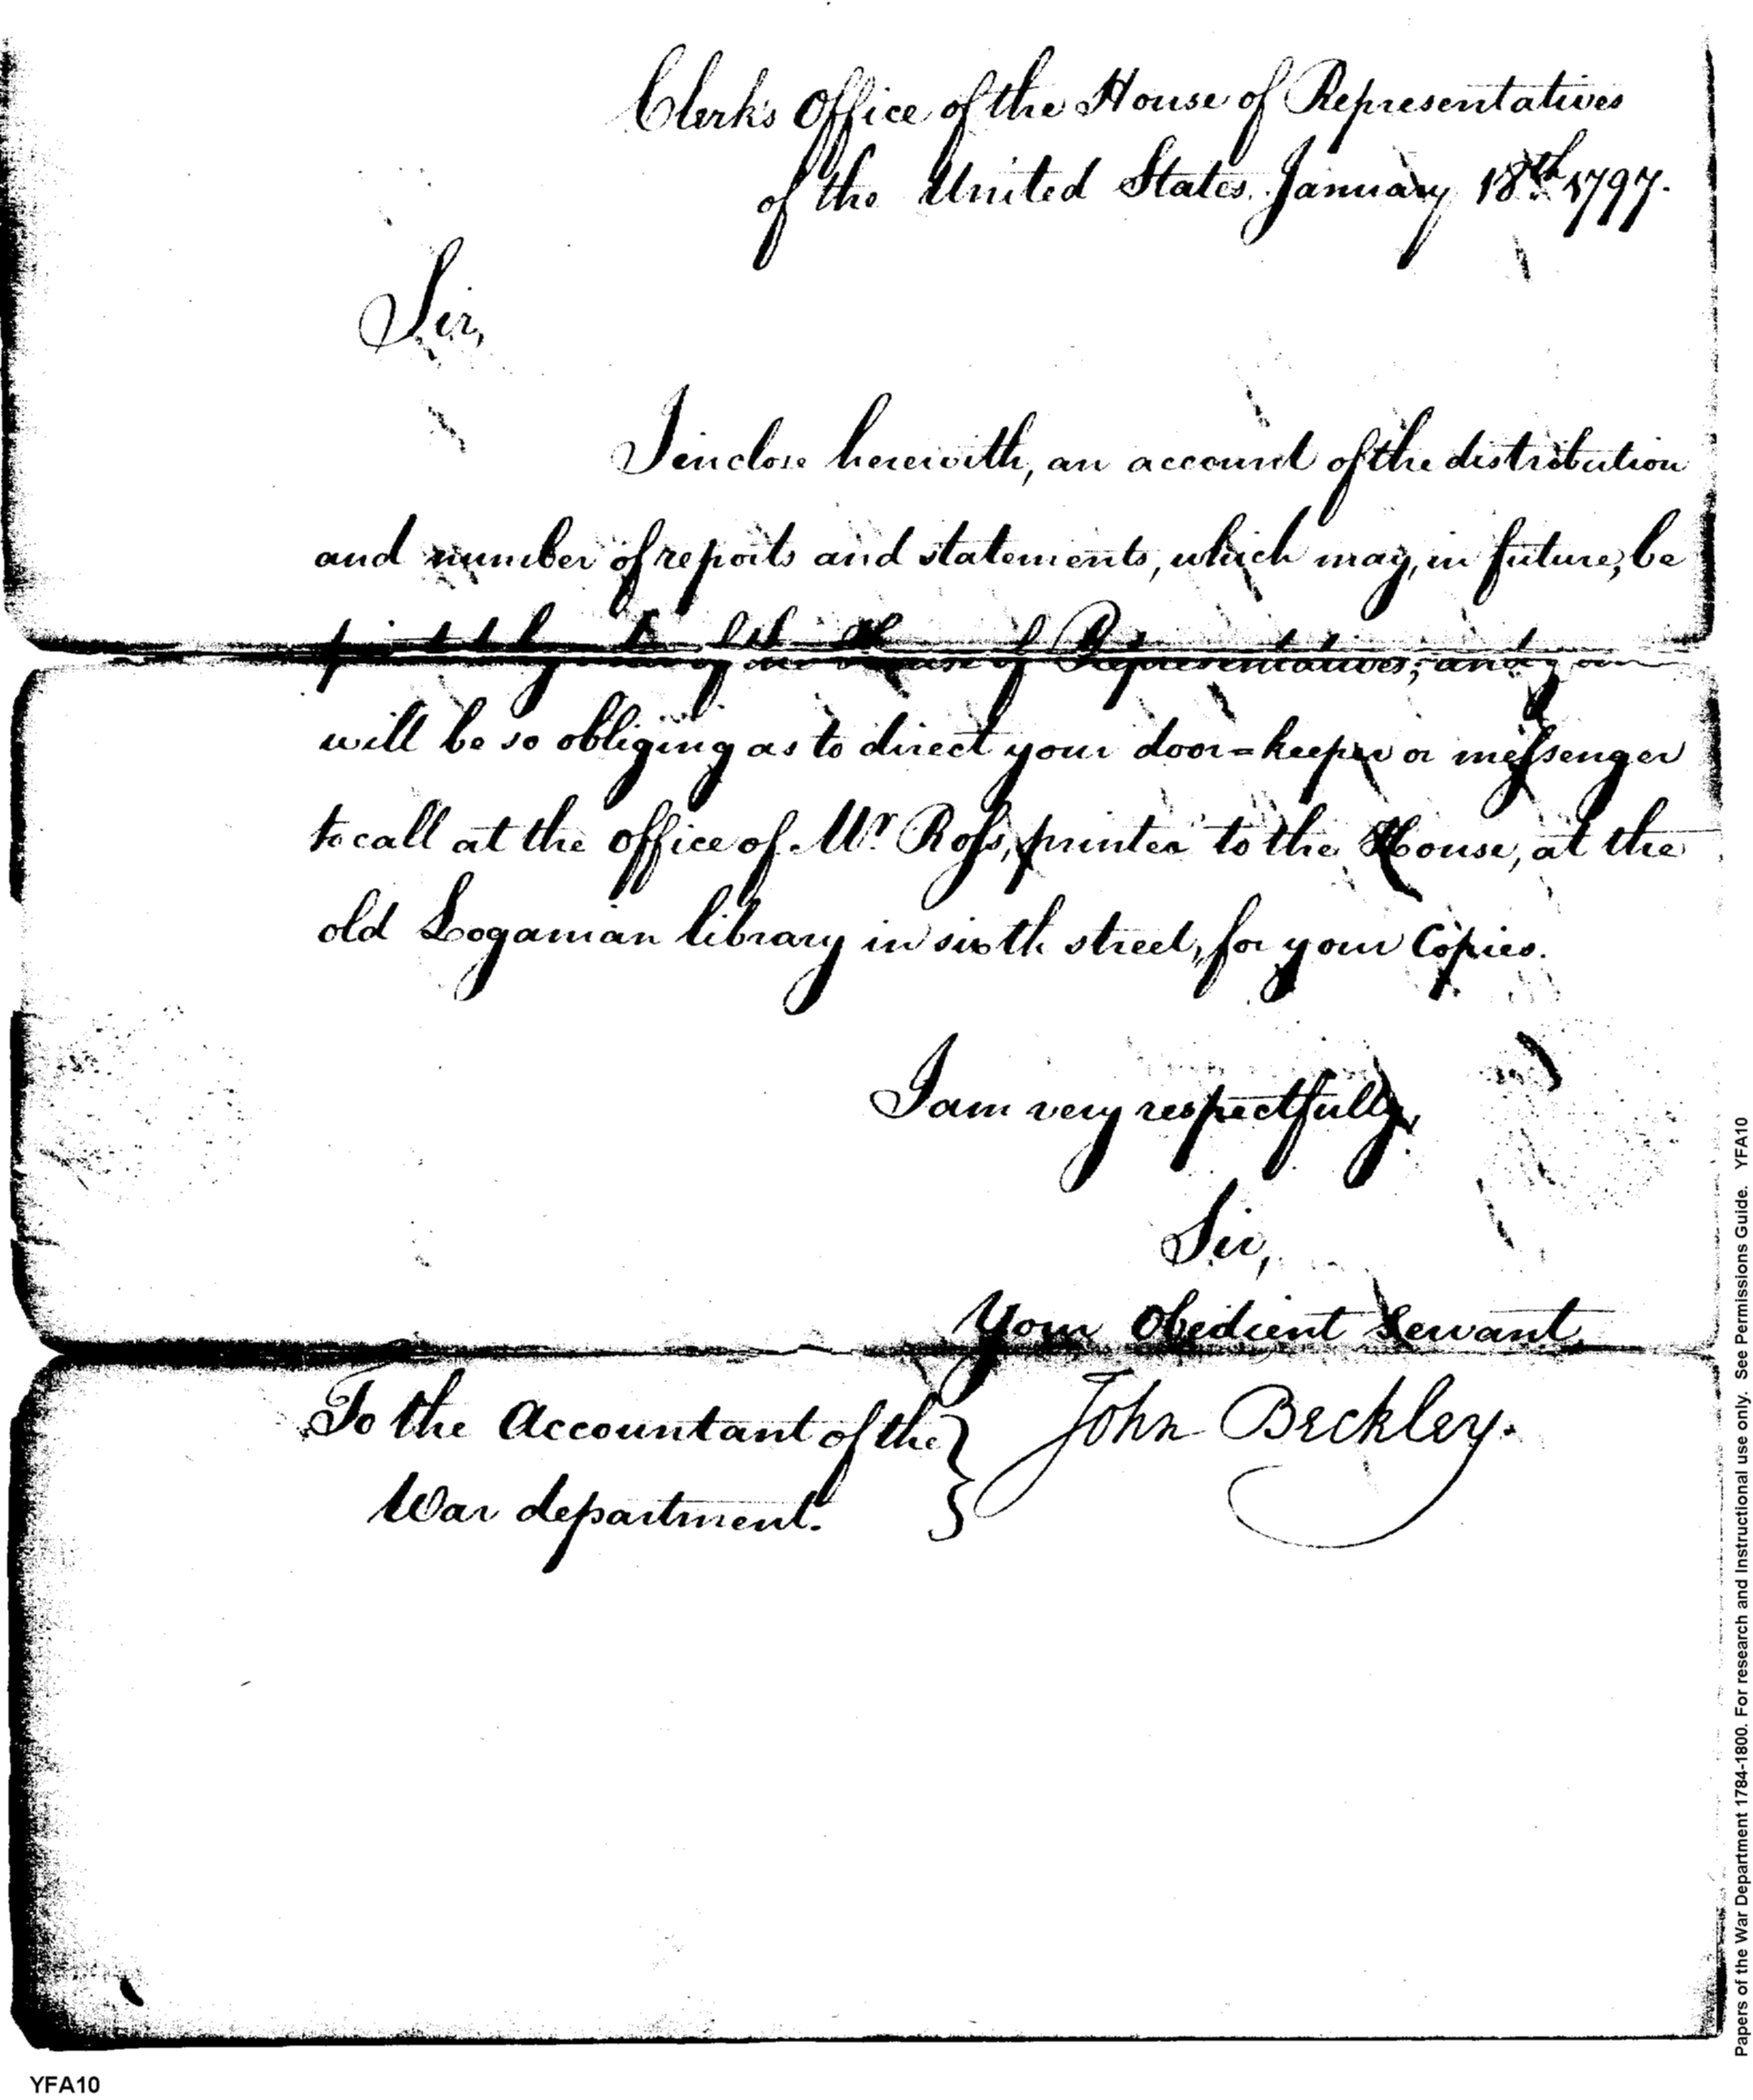 Clerk's Office of the House of Representatives
of the United States, January 18th 1797.
Sir,
I inclose herewith, an account of the distribution
and number of reports and statements, which may, in future, be
printed by order of the House of Representatives; and you
will be so obliging as to direct your door=keeper or messenger
to call at the office of Mr. Ross, printer to the House, at the
old Loganian library in sixth street, for your Copies.
I am very respectfully,
Sir,
Your Obedient Servant,
To the Accountant of the } John Beckley.
War department.
Papers of the War Department 1784-1800. For research and Instructional use only. See Permissions Guide. YFA10
YFA10